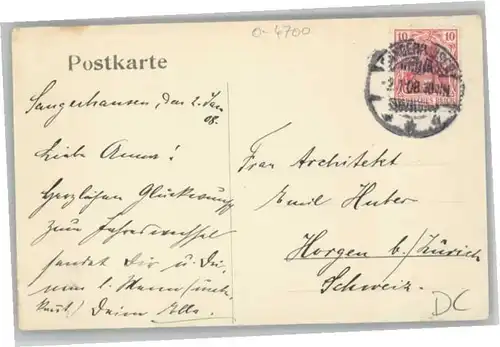 o-4700
10 10
Postkarte
08 10
Sangerhausen, den 2. Jan.
08.
Liebe Anna!
Herzlichen Glückwunsch
zum Jahreswechsel
sendet Dir u. Dei-
nem l. Mann (unbe-
kannt!) Deine Ella.
Frau Architekt
Emil Huber
Horgen b./Zürich
Schweiz.
DC